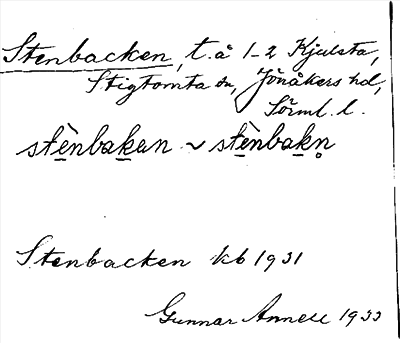 Stenbacken, t. å 1-2 Kjulsta,
Stigtomta sn, Jönåkers hd,
Sörml. l.
stènbakan ~ stènbakn̥
Stenbacken kb 1931
Gunnar Annell 1933